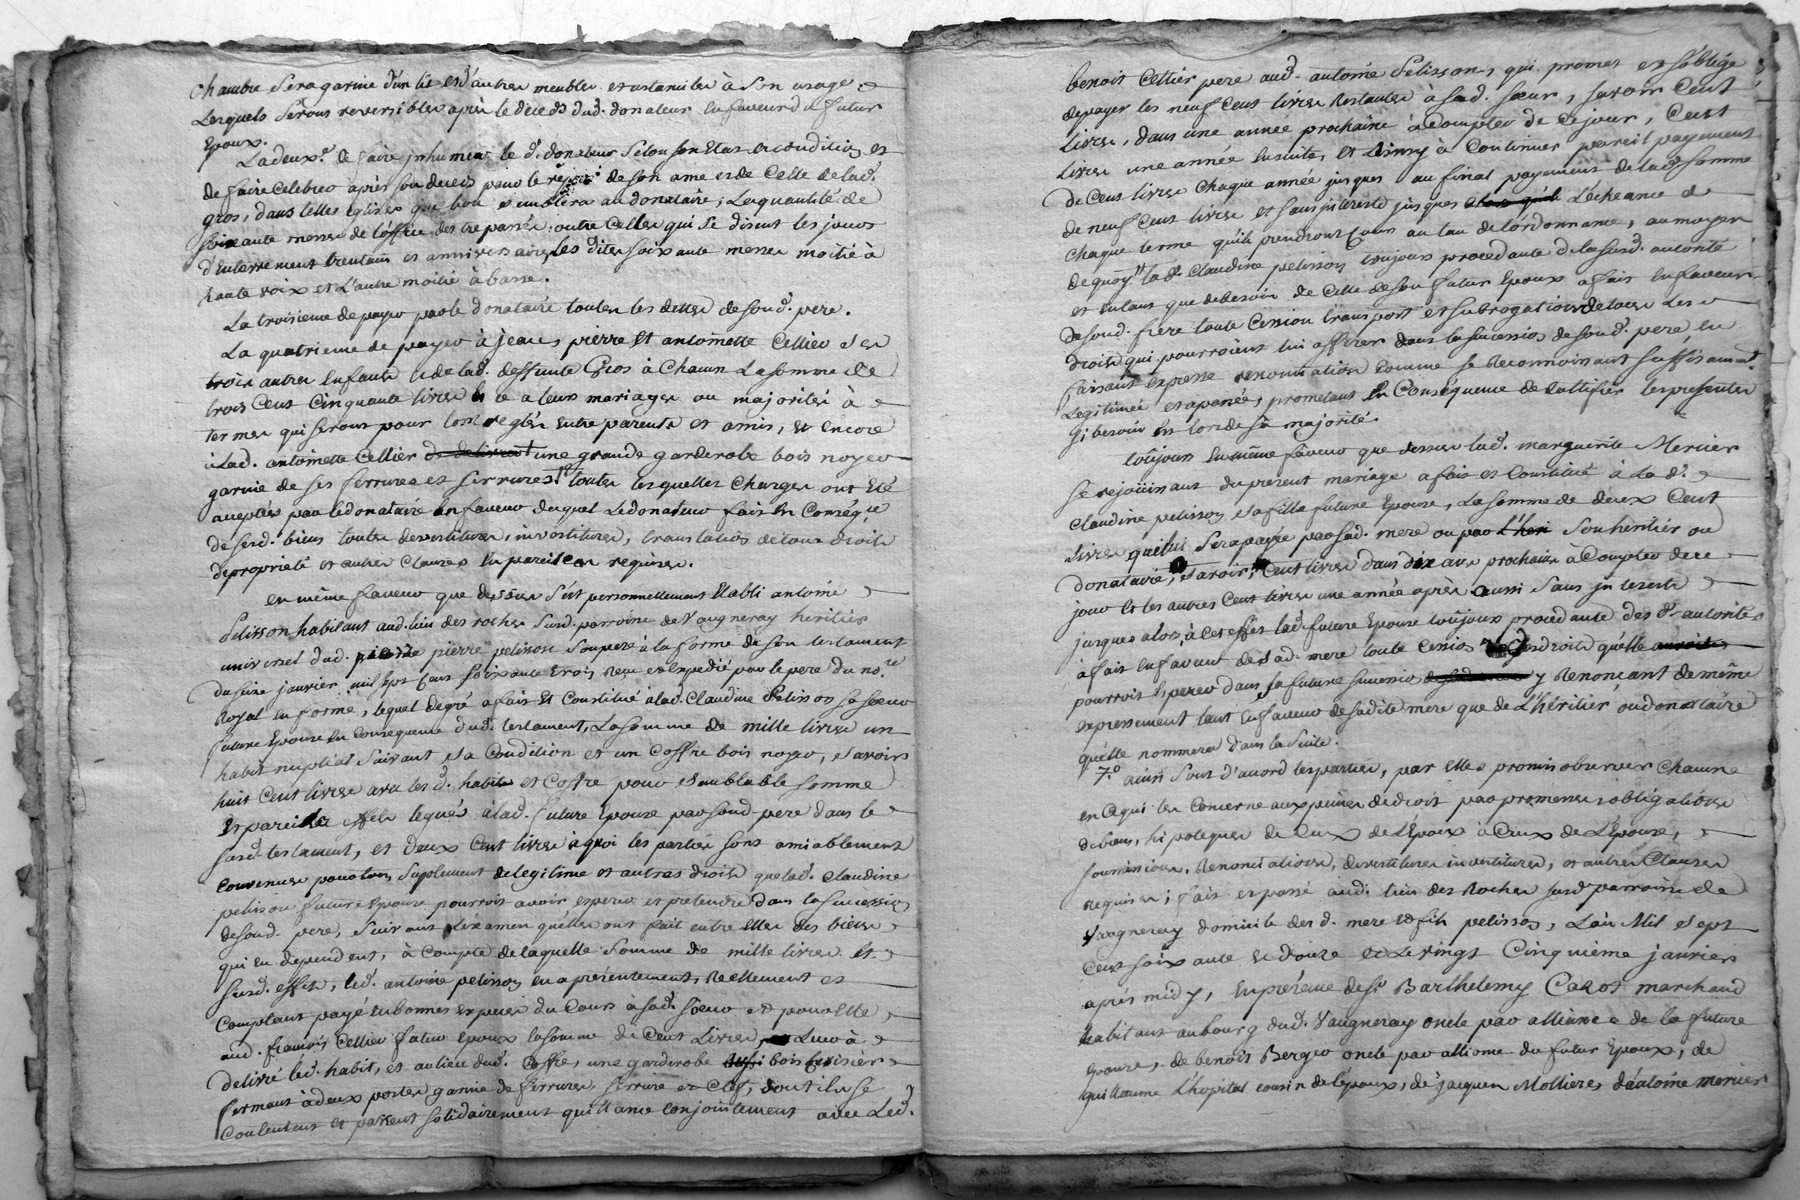 chambre sera garnie d'un lit et d'autres meubles et ustanciles à son usage,
Lesquels seront reversibles après le décéds dud. donateur en faveur du futur
Epoux.
La deux.e de faire inhumer le d. donateur selon son Etat et condition et
de faire celebrer après son deceds pour le repos de son ame et de celle de lad.
gros, dans telles eglises que bon semblera au donataire, La quantité de
soixante messes de l'office des trepassés, outre celles qui se disent les jours
d'enterrement trentain et anniversaire, Les dites soixante messes moitié à
haute voix et L'autre moitié à basse.
La troisieme de payer par le donataire toutes les dettes de sond. pere.
La quatrieme de payer à jean, pierre et antoinette Cellier ses
trois autres enfants et de lad. deffunte Gros à chacun La somme de
trois Cent Cinquante livres a leurs mariages ou majorités à
termes qui seront pour lors reglés entre parents et amis, et encore
à Lad. antoinette Cellier de une grande garderobe bois noyer
garnie de ses ferrures et serrures toutes lesquelles charges ont eté
acceptées par le donataire en faveur duquel Le donateur fait en Conséq.ce
de sesd. biens toutes devestitures, investitures, translation de tous droits
de proprieté et autres clauses en pareil cas requises.
en même faveur que dessus s'est personnellement Etabli antoine
Pelisson habitant aud. lieu des roches susd. parroisse de Vaugneray heritier
universel dud. pierre pelisson son pere à la forme de son testament
du seize janvier mil sept Cent soixante trois Reçu et Expedié par le pere du no.re
Royal en forme, lequel de gré a fait et Constitué à lad. Claudine Pelisson sa soeur
future Epouse en consequence dud. testament, La somme de mille livres un
habit nuptial suivant sa Condition et un Coffre bois noyer, savoir
huit Cent livres avec les d. habits et Coffre pour semblable somme
et pareils effets legués à lad. future Epouse par sond. pere dans le
susd. testament, et deux Cent livres à quoi les parties sont amiablement
convenues pour tous suplement de legitime et autres droits que lad. Claudine
pelisson future Epouse pourroit avoir esperer et pretendre dans la succession
de sond. pere, suivant L'examen qu'elles ont fait entre elles des biens
qui en dependent, à Compte de laquelle somme de mille livres et
susd. effets, led. antoine pelisson en a présentement, Reellement et
Comptant payé en bonnes especes du Cours à sad. soeur et pour elle
aud. françois Cellier futur epoux la somme de Cent Livres, Luy a
delivré led. habit, et au lieu dud. Coffre, une garderobe bois cerisier
fermant à deux portes garnie de ferrures, serrure et clef, dont ils se
Contentent et passent solidairement quittance conjointement avec Led.
benoit Cellier pere aud. antoine Pelisson, qui promet et s'oblige
de payer les neuf Cent livres Restantes à sad. soeur, savoir Cent
Livres, dans une année prochaine à Compter de ce jour, Cent
Livres une année ensuite, et ainsy à Continuer pareil payement
de Cent livres Chaque année jusques au final payement de lad. somme
de neuf Cent livres et sans interets jusques L'echeance de
Chaque terme qu'ils prendront Cours au taux de l'ordonnance, au moyen
de quoy lad. Claudine pelisson toujours procedante de la susd. autorité
et entant que de besoin de Celle de son futur Epoux a fait en faveur
de soud. frere toute Cession transport et subrogation de tous Les
droits qui pourroient lui afferer dans la succession de sond. pere, en
faisant expresse renonciation comme se Reconnoissant suffisament
Legitimée et aparée, promettant En Conséquence de Rattifier les presentes
si besoin est lors de sa majorité.
toujours en même faveur que dessus lad. marguerite Mercier
se rejouissant du present mariage a fait et Constitué à la d.
Claudine pelisson sa fille future Epouse, La somme de deux Cent
Livres qui lui sera payée par sad. mere ou par son héritier ou
donataire, savoir, Cent livres dans dix ans prochains à Compter de ce
jour et les autres Cent livres une année après aussi sans interets
jusques alors, à Ces effets lad. future Epouse toujours procedante des d. autorités
a fait en faveur de sad. mere toute Cession des droits qu'elle
pourroit Esperer dans sa future succession y Renonçant de même
expressement tant en faveur de sadite mere que de L'héritier, ou donataire
qu'elle nommera dans la suite.
7.o ainsi sont d'accord les parties, par elles promis observer chacune
en ce qui les concerne aux peines de droit par promesses obligations
de biens, hipoteques de Ceux de l'Epoux à Ceux de L'Epouse,
soumissions, Renonciations, devestitures investitures, et autres Clauses
requises; fait et passé aud. lieu des Roches susd. parroisse de
Vaugneray domicile des d. mere et fils pelisson, L'an Mil sept
Cent soixante et douze et Le vingt Cinquième janvier
après midy, En présence de S.r Barthelemy Carot marchand
habitant au bourg dud. Vaugneray oncle par alliance de la future
epouse, de benoit Berger oncle par alliance du futur Epoux, de
guillaume L'hopital cousin de l'epoux, de jacques Mollieres, d'antoine mercier